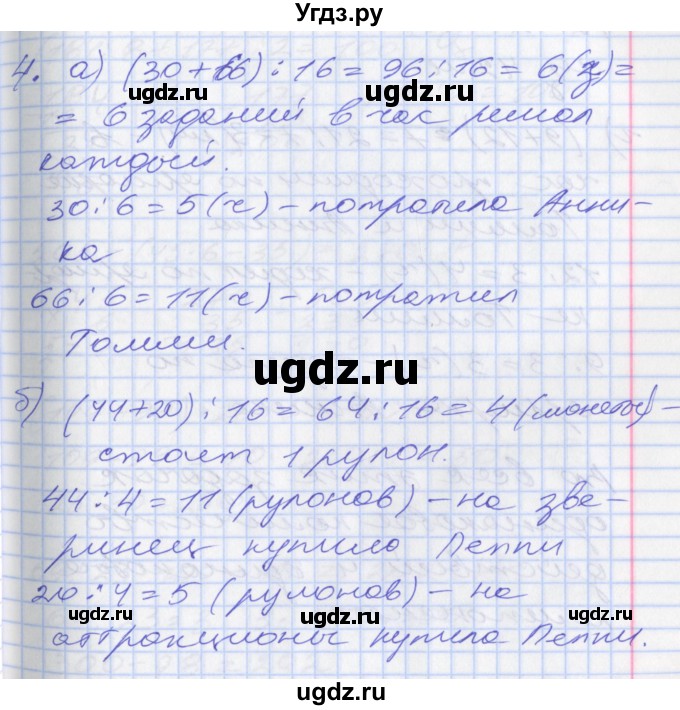 Угдз.ру
4. а) (30+66):16=96:16=6(з)=
= 6 заданий в час решал
каждый.
30:6=5(ч)-потратила Анни-
ка
66:6=11(ч)-потратил
Томми.
б) (44+20):16=64:16=4(монеты)-
стоит 1 рулон.
44:4=11(рулонов)-на зве-
ринец купила Пеппи
20:4=5 (рулонов)-на
аттракционы купила Пеппи.
ugdz.ru
ugdz.ru
ugdz.ru
ugdz.ru
ugdz.ru
ugdz.ru
ugdz.ru
ugdz.ru
ugdz.ru
ugdz.ru